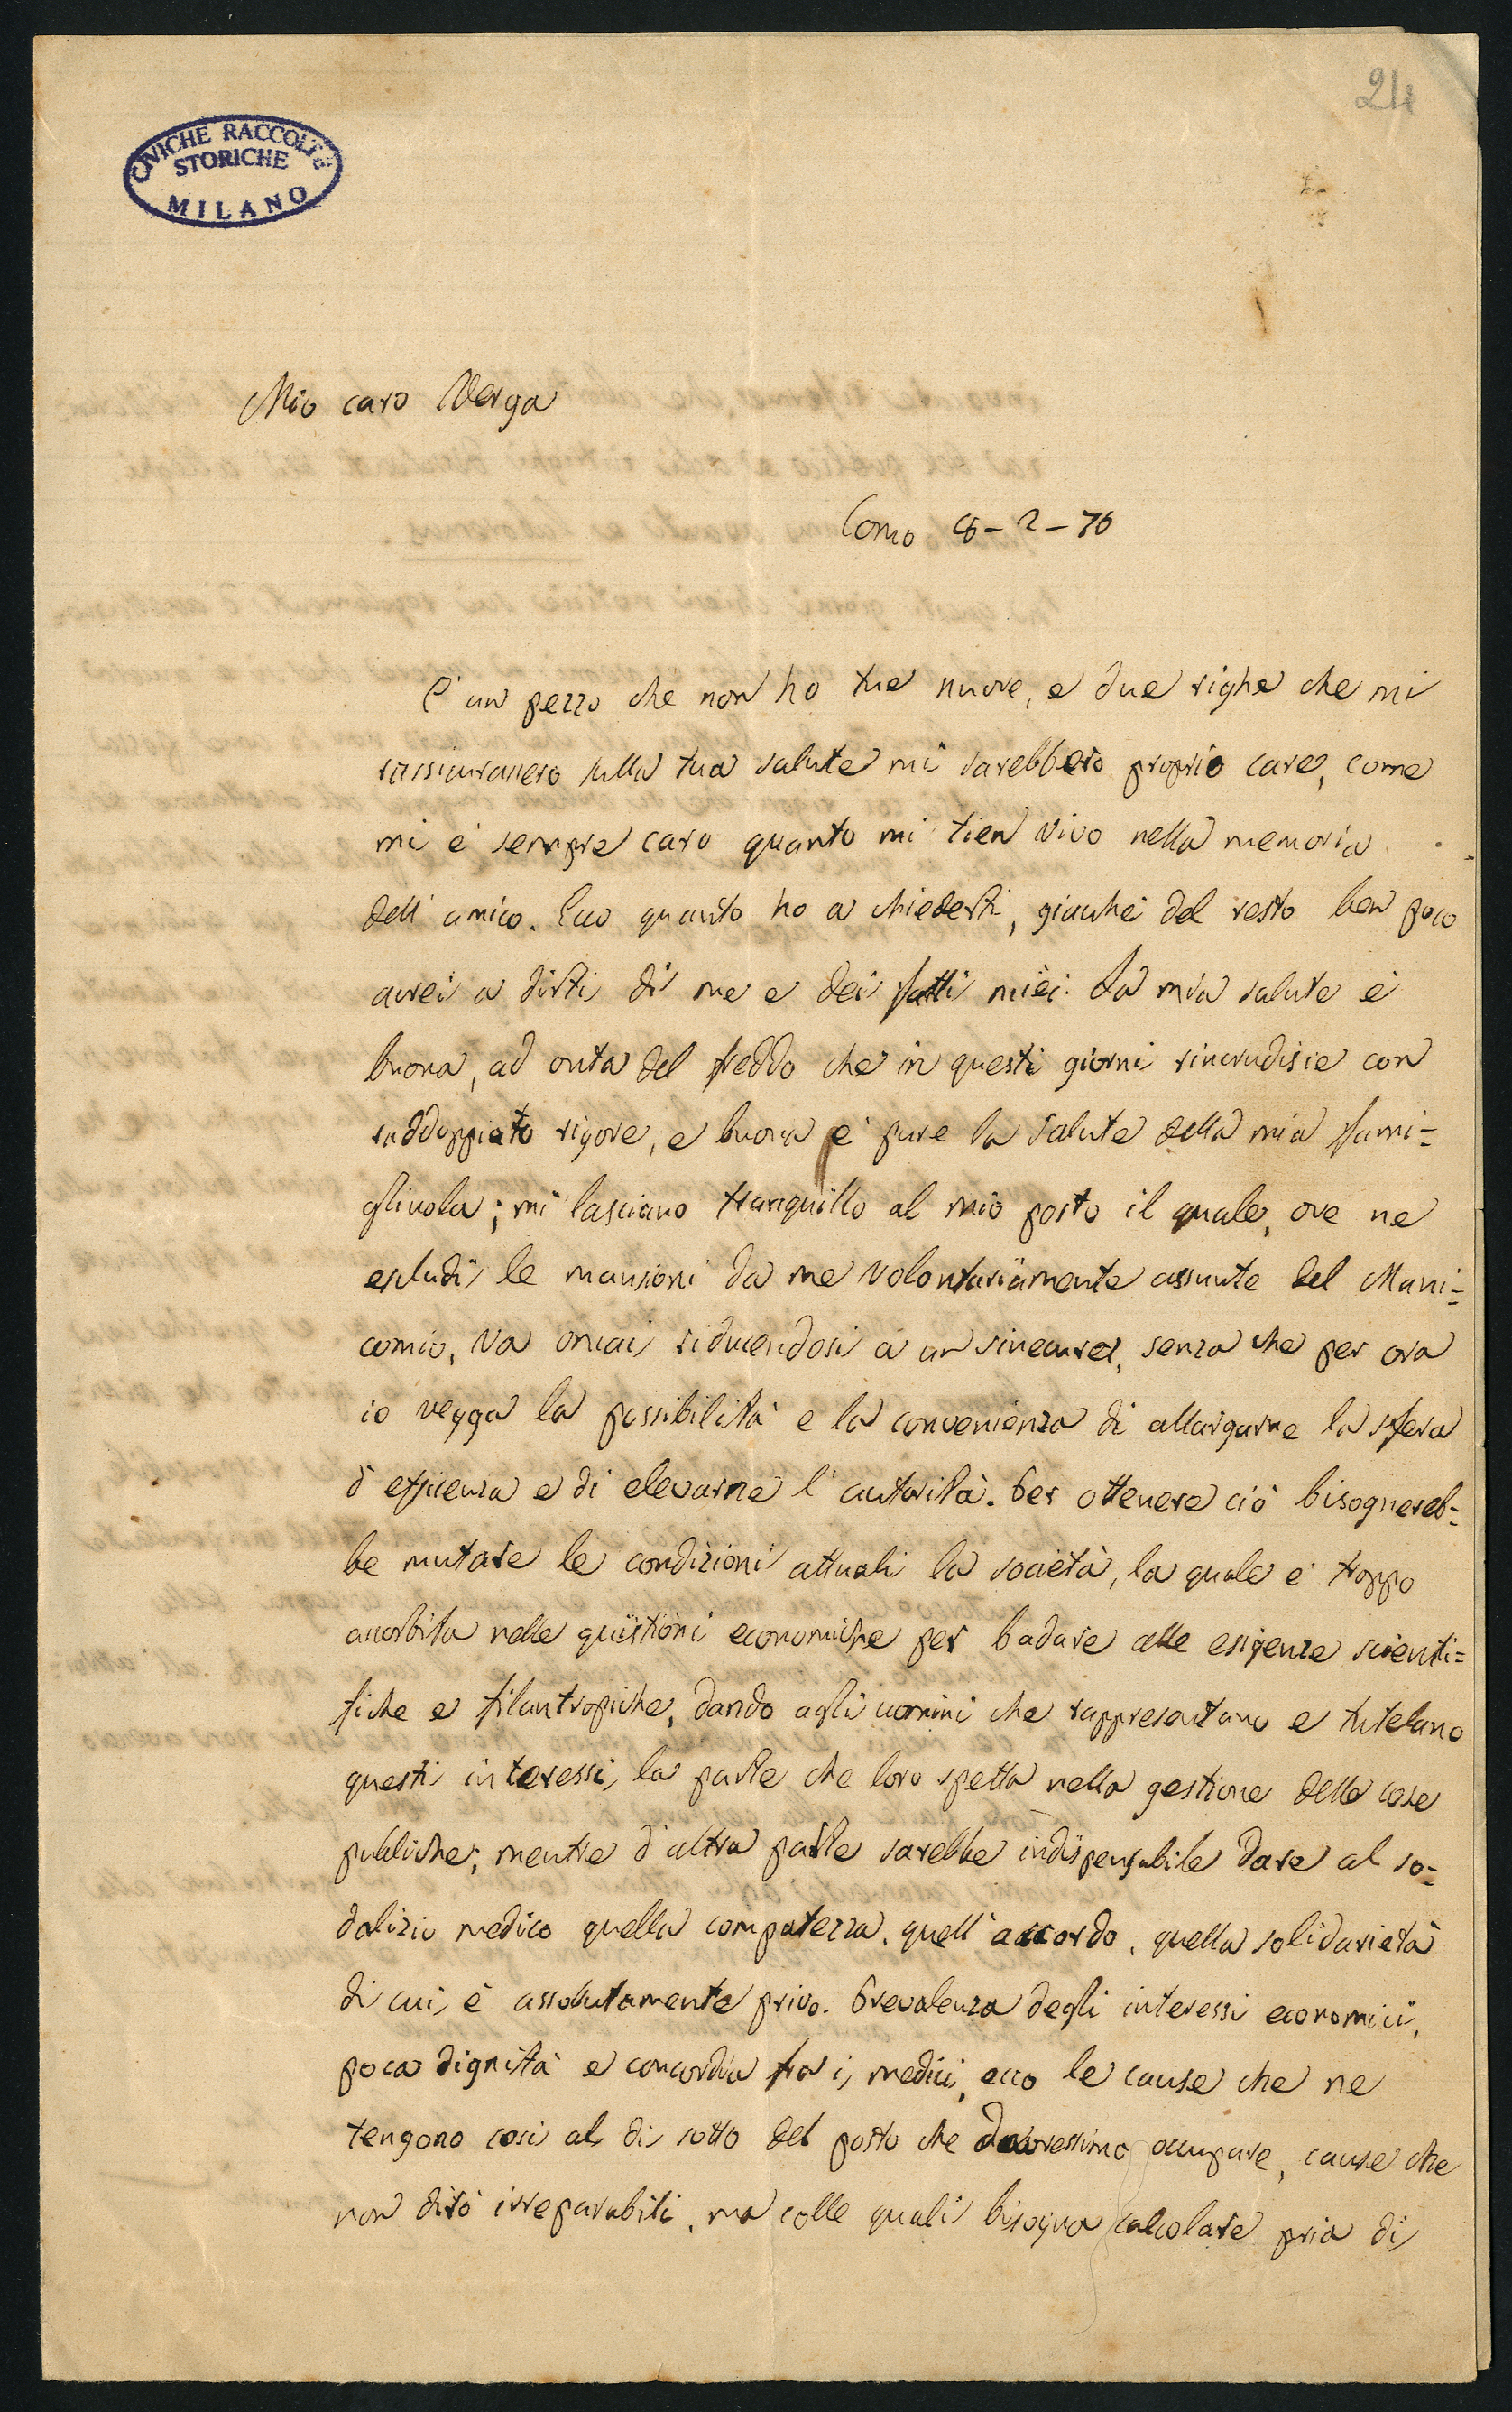 24
CIVICHE RACCOLTE
STORICHE
MILANO
Mio caro Verga
Como 8-2-76
È un pezzo che non ho tue nuove, e due righe che mi
rassicurassero sulla tua salute mi sarebbero proprio care, come
mi è sempre caro quanto mi tien vivo nella memoria
dell'amico. Ecco quanto ho a chiederti, giacché del resto ben poco
avrei a dirti di me e dei fatti miei. La mia salute è
buona, ad onta del freddo che in questi giorni rincrudisce con
raddoppiato rigore, e buona è pure la salute della mia fami=
gliuola; mi lasciano tranquillo al mio posto il quale, ove ne
escludi le mansioni da me volontariamente assunte del Mani=
comio, va omai riducendosi a un sinecura, senza che per ora
io vegga la possibilità e la convenienza di allargarne la sfera
d'efficienza e di elevarne l'autorità. Per ottenere ciò bisognereb=
be mutare le condizioni attuali la società, la quale è troppo
assorbita nelle quistioni economiche per badare alle esigenze scienti=
fiche e filantropiche, dando agli uomini che rappresentano e tutelano
questi interessi, la parte che loro spetta nella gestione delle cose
pubbliche; mentre d'altra parte sarebbe indispensabile dare al so=
dalizio medico quella compatezza, quell'accordo, quella solidarietà
di cui è assolutamente privo. Prevalenza degli interessi economici,
poca dignità e concordia fra i medici, ecco le cause che ne
tengono così al di sotto del posto che dovressimo occupare, cause che
non dirò irreparabili, ma colle quali bisogna calcolare pria di